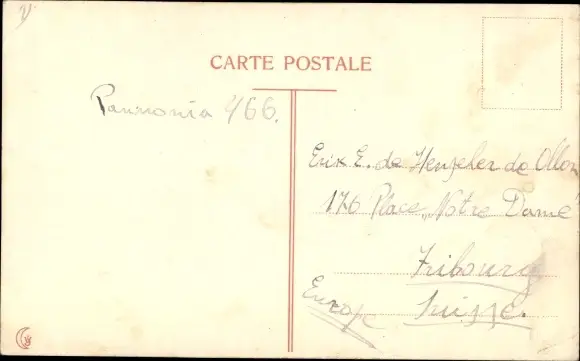 CARTE POSTALE
Pannonia 466.
Erix E. de Henseler de Ollon
176 Place „Notre Dame"
Fribourg
Europe Suisse.